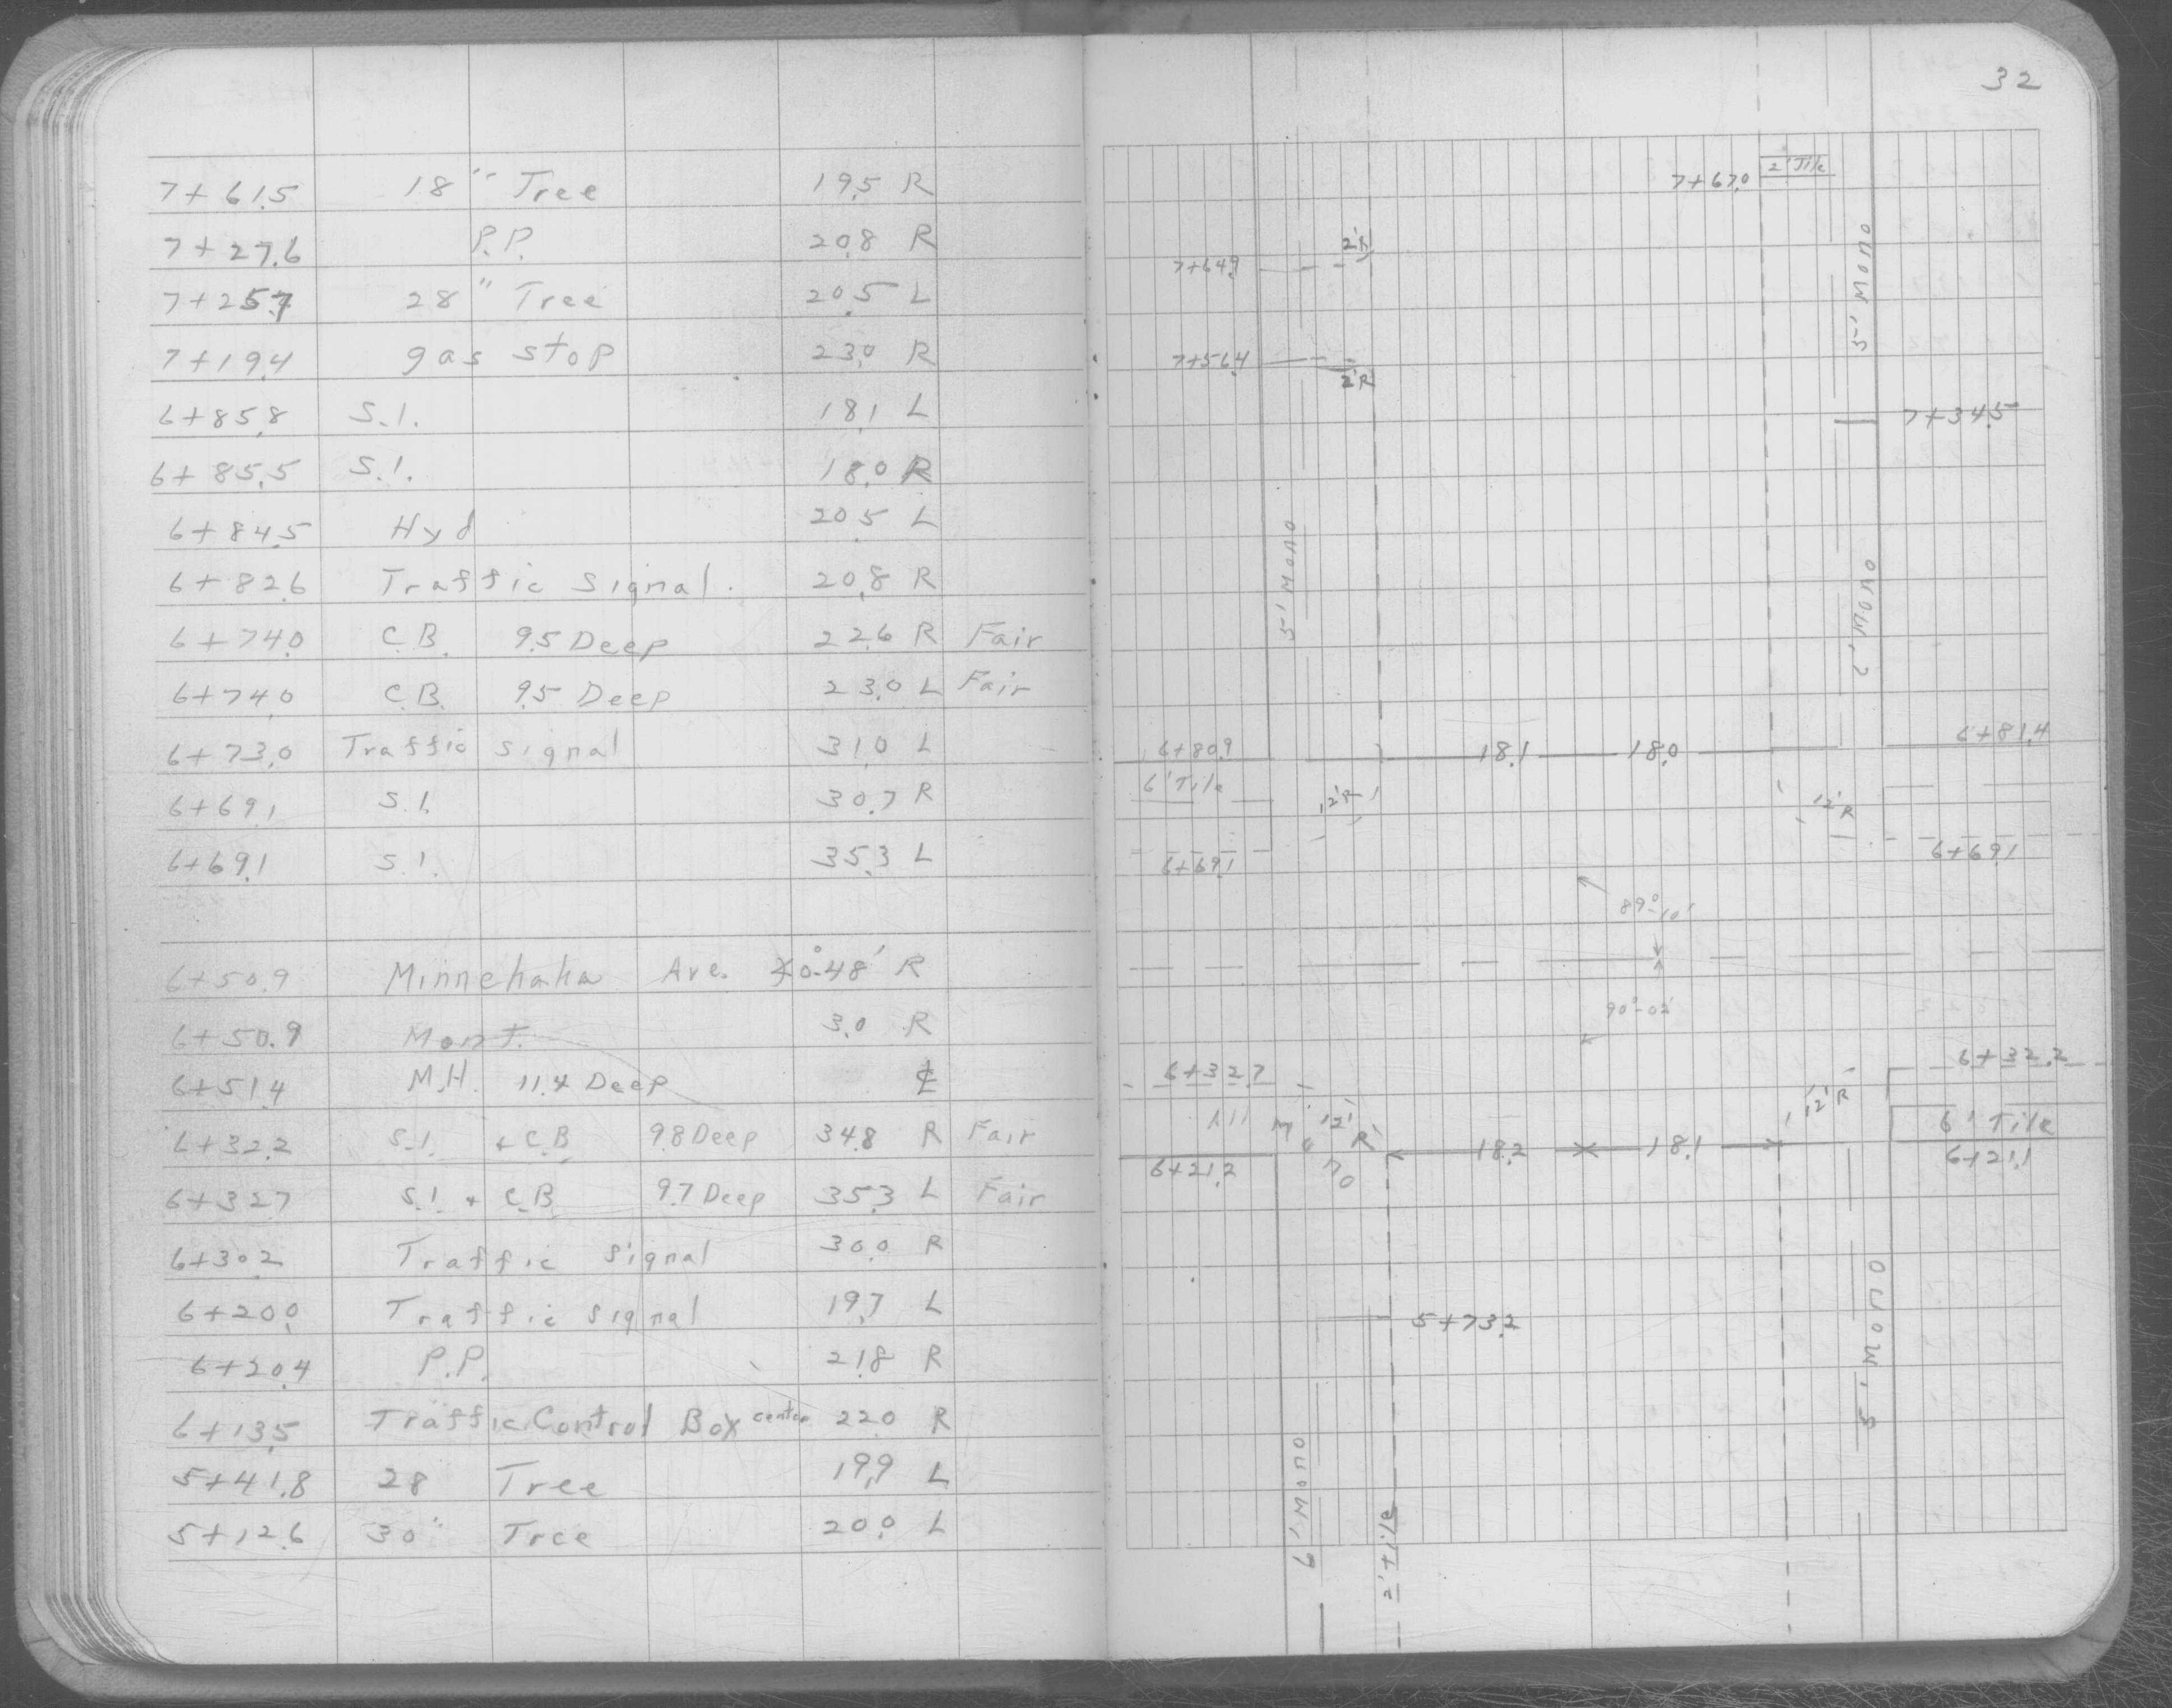 7+61.5 18" Tree 19.5 R
7+27.6 P.P. 20.8 R
7+25.7 28" Tree 20.5 L
7+19.4 gas stop 23.0 R
6+85.8 S.I. 18.1 L
6+85.5 S.I. 18.0 R
6+84.5 Hyd 20.5 L
6+82.6 Traffic Signal. 20.8 R
6+74.0 C.B. 9.5 Deep 22.6 R Fair
6+74.0 C.B. 9.5 Deep 23.0 L Fair
6+73.0 Traffic signal 31.0 L
6+69.1 S.I. 30.7 R
6+69.1 S.I. 35.3 L
6+50.9 Minnehaha Ave. ∡0°-48' R
6+50.9 Mont. 3.0 R
6+51.4 M.H. 11.4 Deep ℄
6+32.2 S.I. + C.B. 9.8 Deep 34.8 R Fair
6+32.7 S.I. + C.B. 9.7 Deep 35.3 L Fair
6+30.2 Traffic Signal 30.0 R
6+20.0 Traffic Signal 19.7 L
6+20.4 P.P. 21.8 R
6+13.5 Traffic Control Box center 22.0 R
5+41.8 28 Tree 19.9 L
5+12.6 30" Tree 20.0 L
32
7+67.0 2' Tile
7+64.9 2'R
5' Mono
7+56.4 2'R
7+34.5
5' Mono
6' Mono
6+80.9 18.1 18.0 6+81.4
6' Tile
12'R 12'R
6+69.1 6+69.1
89°-10'
90°-02'
6+32.7 6+32.2
All Mono 12'R 12'R
6' Tile
6+21.2 18.2 18.1 6+21.1
5+73.2
5' Mono
6' Mono
2' tile